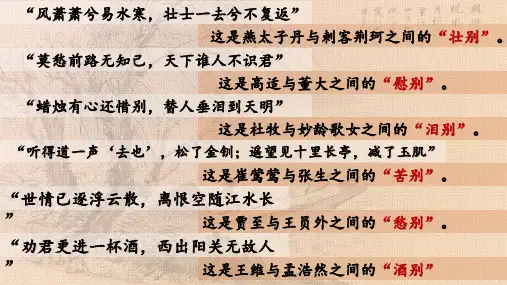 “风萧萧兮易水寒，壮士一去兮不复返”
这是燕太子丹与刺客荆轲之间的“壮别”。
“莫愁前路无知己，天下谁人不识君”
这是高适与董大之间的“慰别”。
“蜡烛有心还惜别，替人垂泪到天明”
这是杜牧与妙龄歌女之间的“泪别”。
“听得道一声‘去也’，松了金钏；遥望见十里长亭，减了玉肌”
这是崔莺莺与张生之间的“苦别”。
“世情已逐浮云散，离恨空随江水长
”
这是贾至与王员外之间的“愁别”。
“劝君更进一杯酒，西出阳关无故人
”
这是王维与孟浩然之间的“酒别”